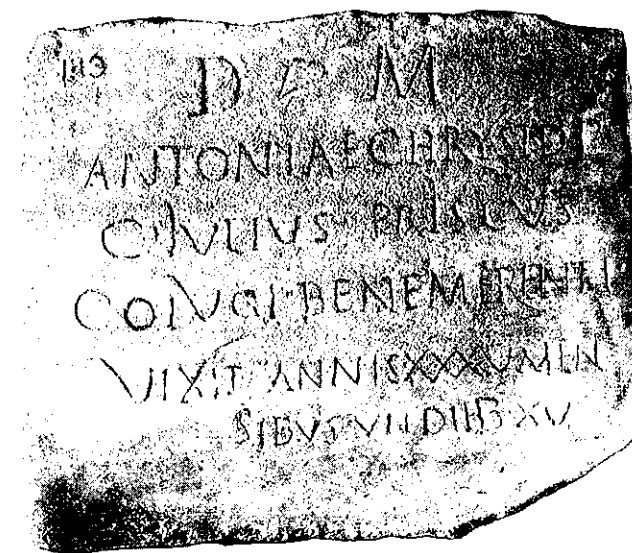 D M
ANTONIAE CHRYSIDI
C IVLIVS PRISCVS
COIVGI BENEMERENTI
VIXIT ANNIS XXXV MEN
SIBVS VII DIEB XV